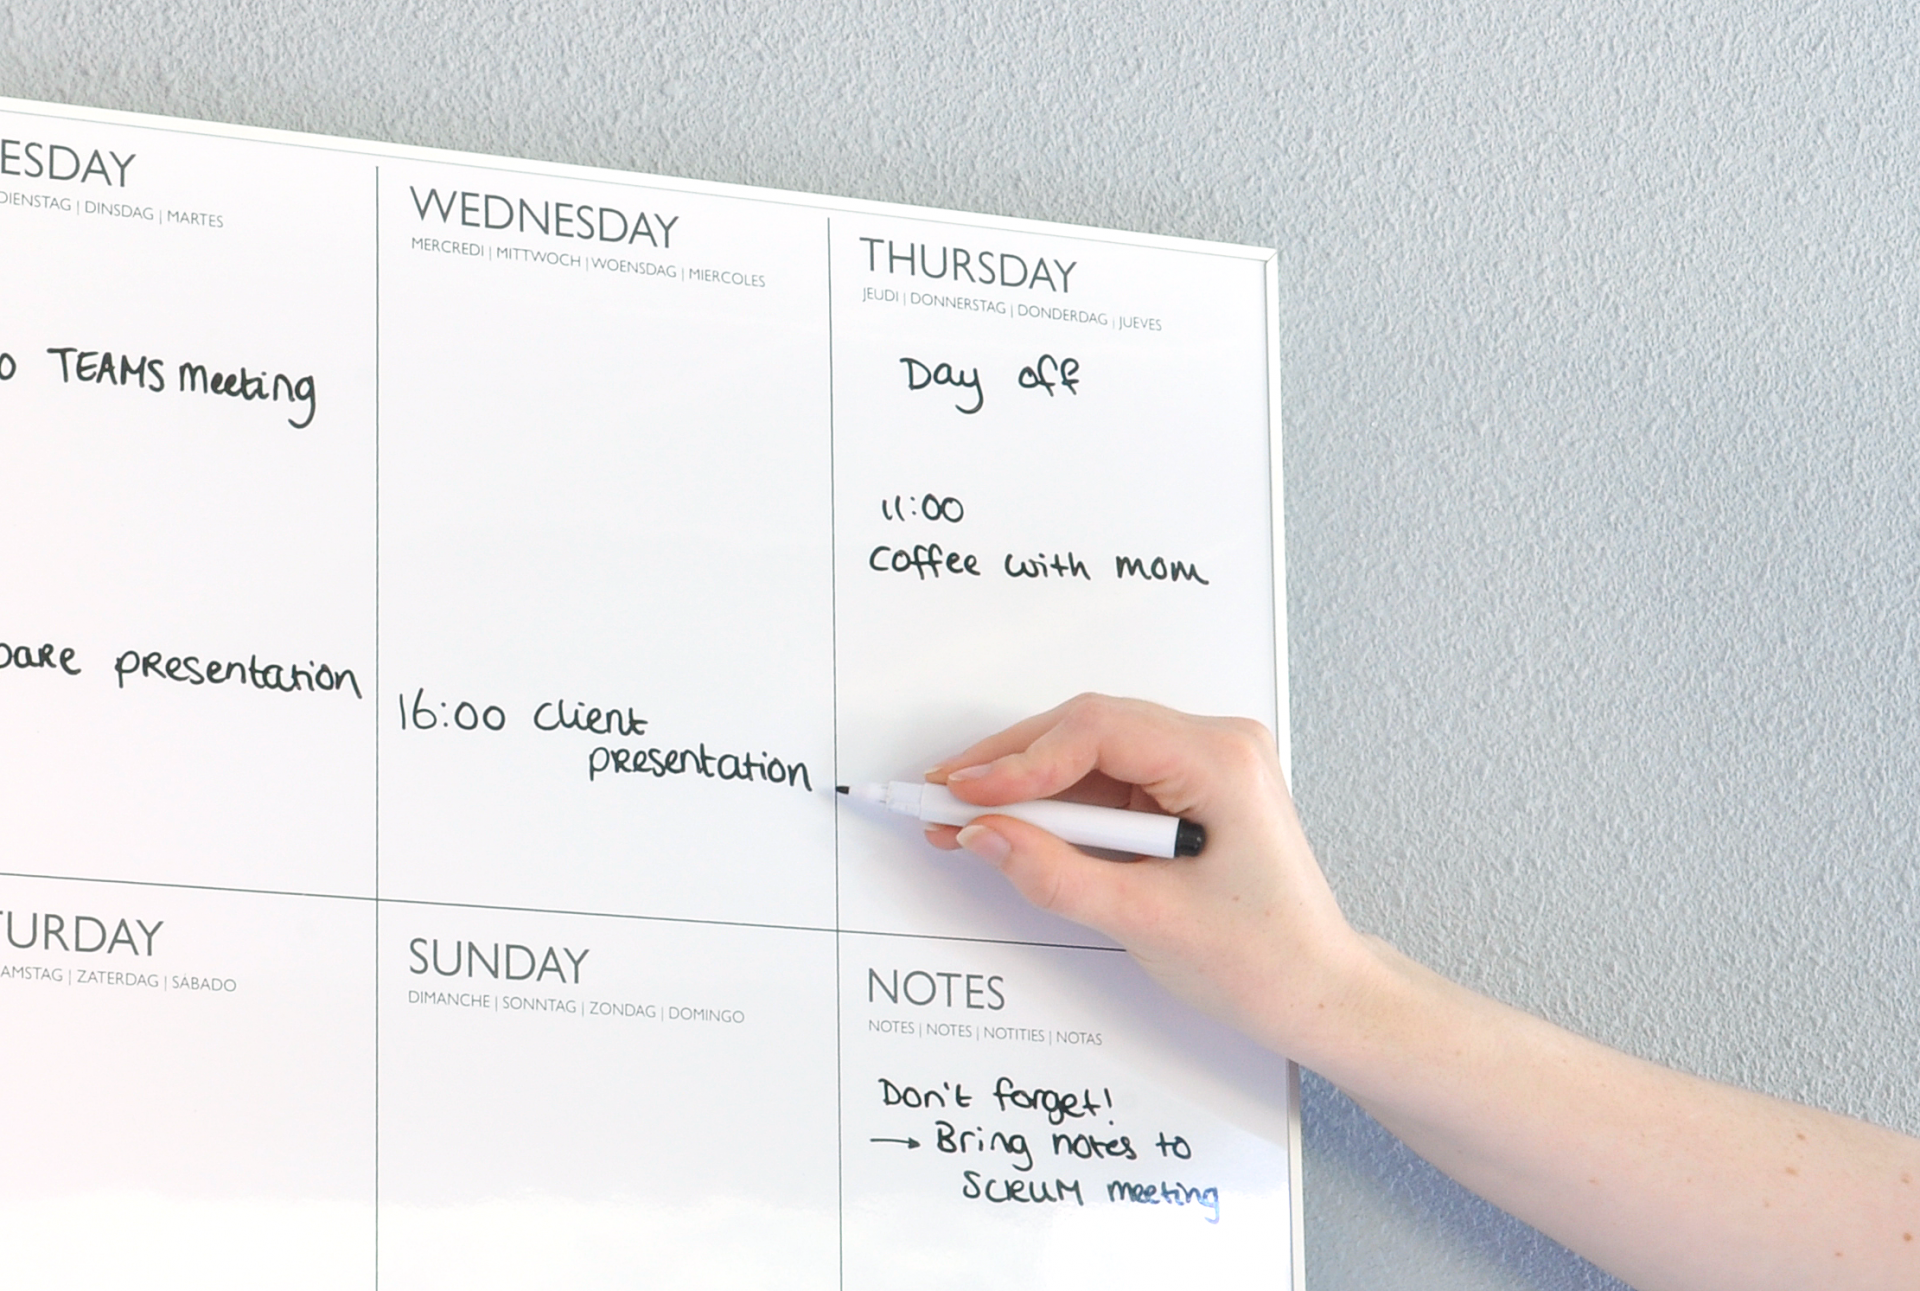 ESDAY
DIENSTAG | DINSDAG | MARTES
TEAMS meeting
presentation
WEDNESDAY
MERCREDI | MITTWOCH | WOENSDAG | MIERCOLES
16:00 client
presentation
THURSDAY
JEUDI | DONNERSTAG | DONDERDAG | JUEVES
Day off
11:00
Coffee with mom
URDAY
AMSTAG | ZATERDAG | SÁBADO
SUNDAY
DIMANCHE | SONNTAG | ZONDAG | DOMINGO
NOTES
NOTES | NOTES | NOTITIES | NOTAS
Don't forget!
→ Bring notes to
SCRUM meeting